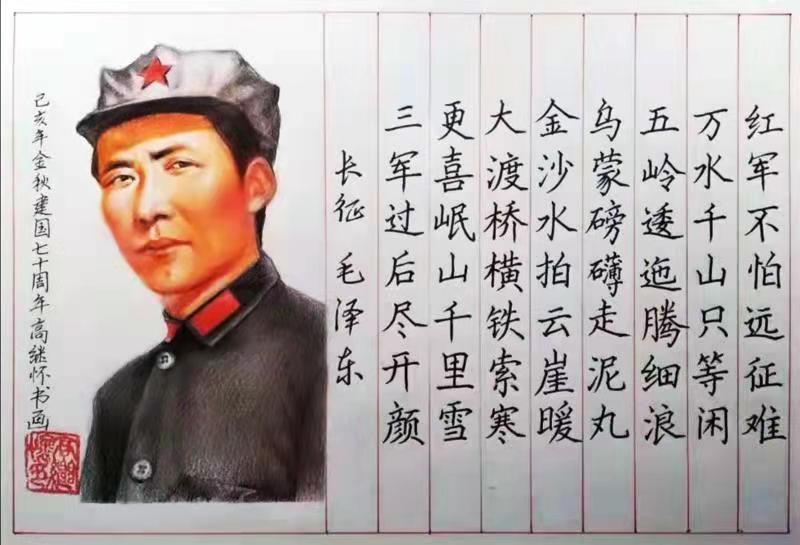 红军不怕远征难
万水千山只等闲
五岭逶迤腾细浪
乌蒙磅礴走泥丸
金沙水拍云崖暖
大渡桥横铁索寒
更喜岷山千里雪
三军过后尽开颜
长征 毛泽东
己亥年金秋建国七十周年高继怀书画